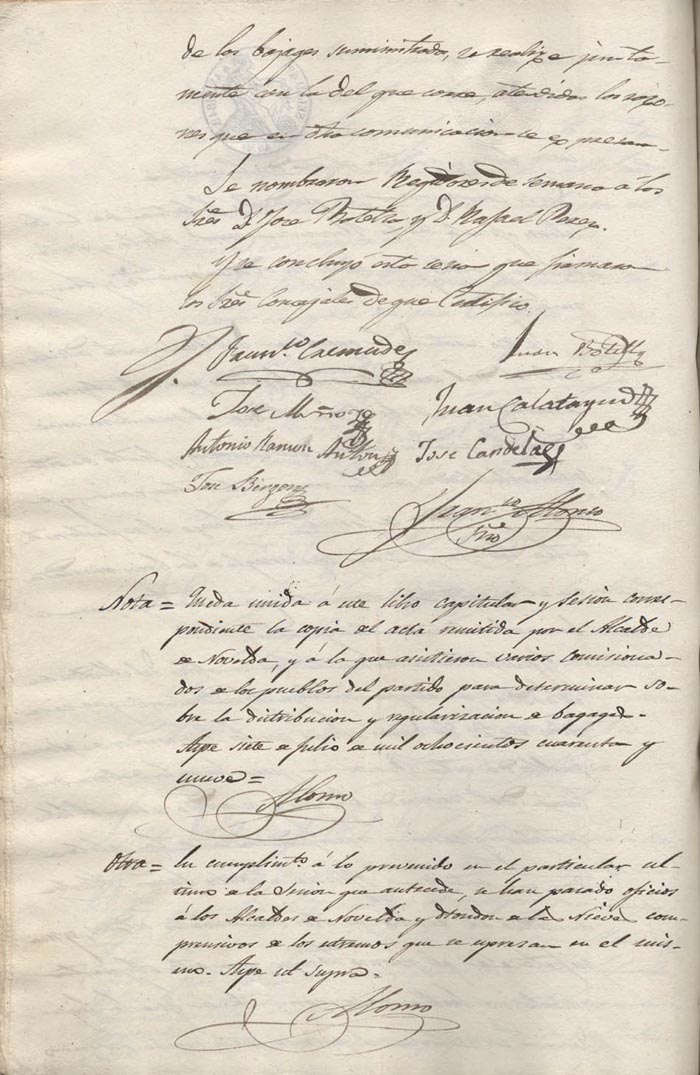 de los bajages suministrados, se realize junta-
mente con la del que corre, atendidas las razo-
nes que en dha comunicacion se expresan.
Se nombraron Regidores de semana á los
Sres. D. Jose Botella y D. Rafael Perez.
Y se concluyó esta sesion que firmaron
los Sres. Concejales de que Certifico.
Juan Botella
Jose Muñoz
Juan Calatayud
Antonio Ramon Antón
Jose Candela
Franco. Alonso
Srio.
Nota = Queda unida á este libro capitular y sesion corres-
pondiente la copia del acta remitida por el Alcalde
de Novelda, y á la que asistieron varios comisiona-
dos de los pueblos del partido para determinar so-
bre la distribucion y regularizacion de bagages.
Aspe siete de Julio de mil ochocientos cuarenta y
nueve =
Alonso
Otra = En cumplimto. á lo prevenido en el particular ul-
timo de la Sesion que antecede, se han pasado oficios
á los Alcaldes de Novelda y Hondon de las Nieves com-
prensivos de los estremos que se espresan en el mis-
mo. Aspe ut supra.
Alonso